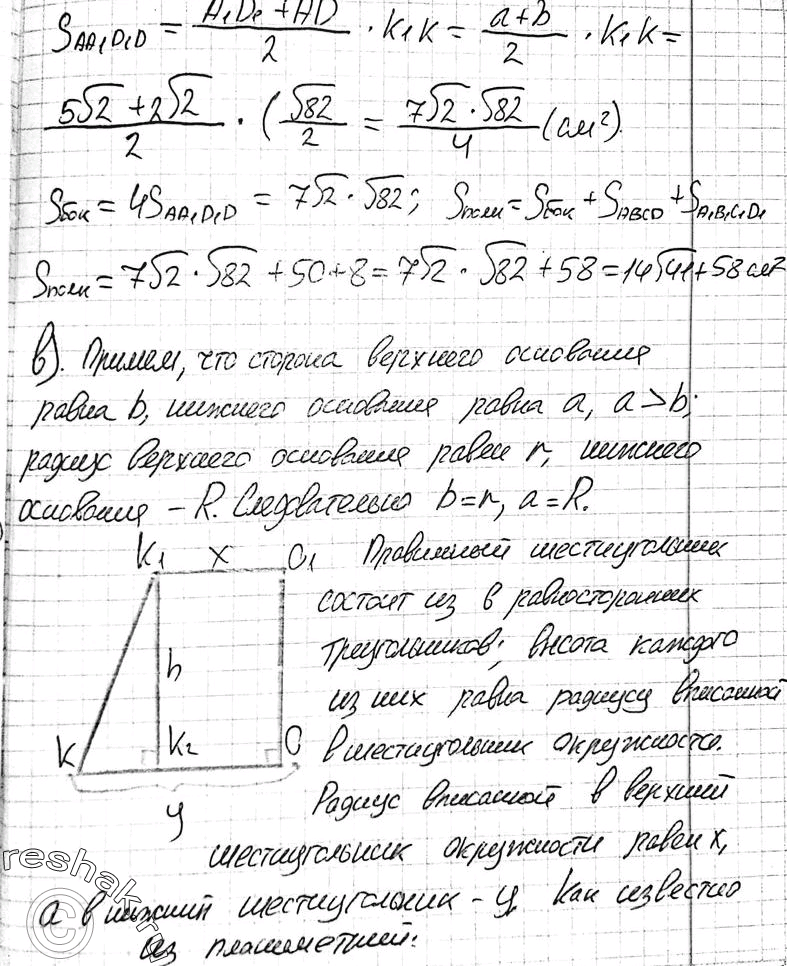 S_{AA₁D₁D} = (A₁D₁ + AD)/2 · K₁K = (a+b)/2 · K₁K =
(5√2 + 2√2)/2 · (√82/2 = (7√2 · √82)/4 (см²).
Sбок = 4S_{AA₁D₁D} = 7√2 · √82; Sполн = Sбок + S_{ABCD} + S_{A₁B₁C₁D₁}
Sполн = 7√2 · √82 + 50 + 8 = 7√2 · √82 + 58 = 14√41 + 58 см²
в). Примем, что сторона верхнего основания
равна b, нижнего основания равна a, a > b;
радиус верхнего основания равен r, нижнего
основания – R. Следовательно b = r, a = R.
K₁ x O₁ Правильный шестиугольник
состоит из 6 равносторонних
треугольников; высота каждого
h из них равна радиусу вписанной
K K₂ O в шестиугольник окружности.
y Радиус вписанной в верхний
шестиугольник окружности равен x,
а в нижний шестиугольник – y. Как известно
из планиметрии:
reshak.ru